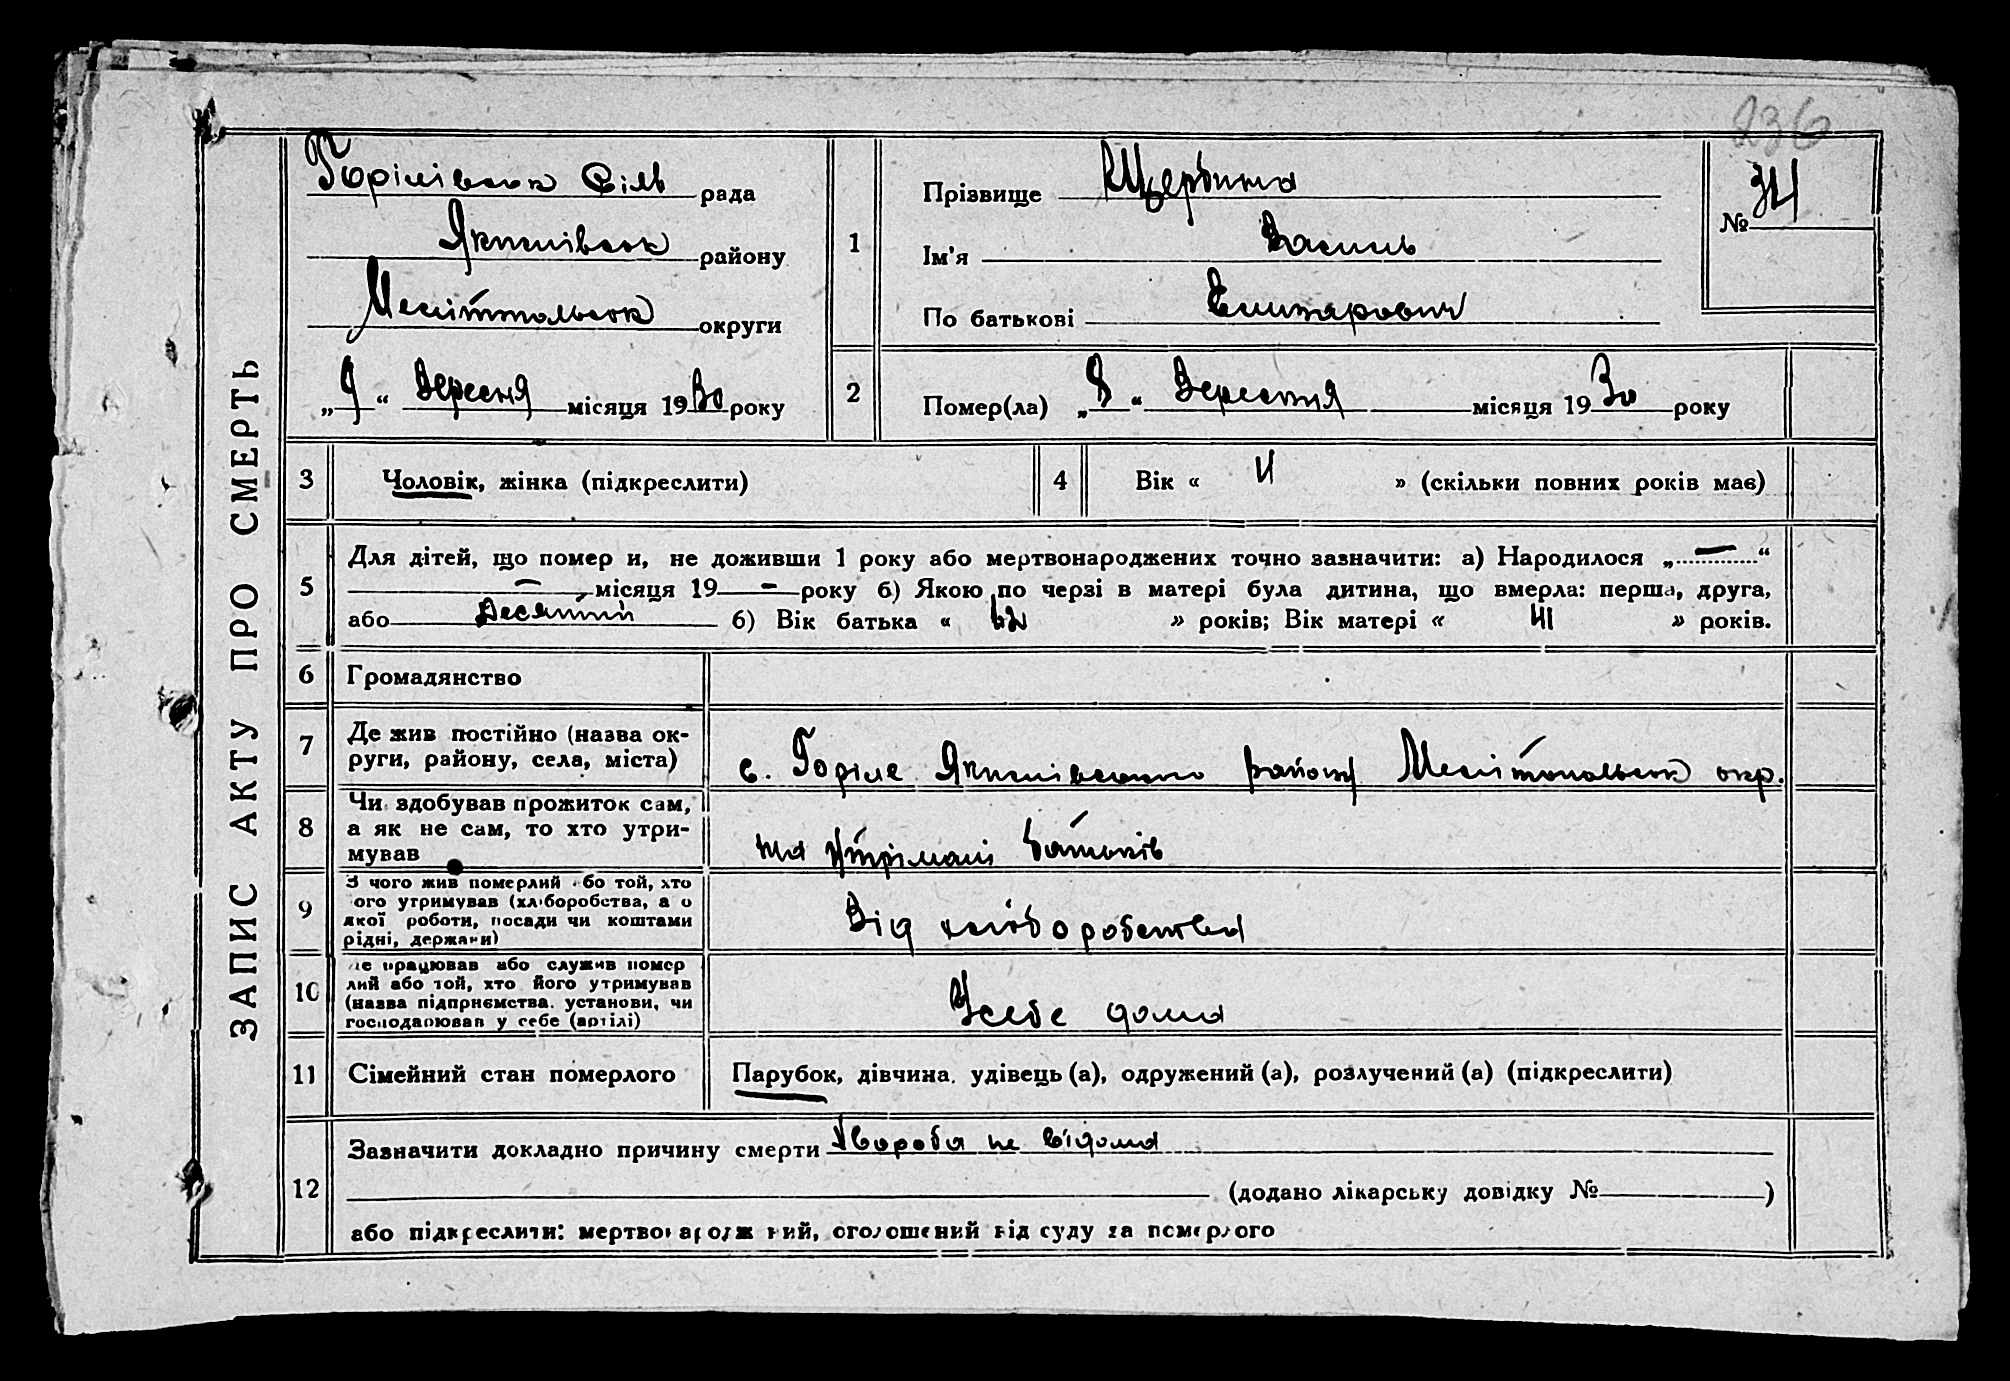 236
ЗАПИС АКТУ ПРО СМЕРТЬ
Горілівськ Сіль рада
Якимівськ району
Мелітпольськ округи
„9“ Вересня місяця 1930 року
1
Прізвище Щербина
Ім'я Василь
По батькові
№ 34
2
Помер(ла) „8“ Вересня місяця 1930 року
3 Чоловік, жінка (підкреслити)
4 Вік « » (скільки повних років має)
5
Для дітей, що помер и, не доживши 1 року або мертвонароджених точно зазначити: а) Народилося „—“
— місяця 19 — року б) Якою по черзі в матері була дитина, що вмерла: перша, друга,
або Десятий б) Вік батька « » років; Вік матері « 41 » років.
6 Громадянство
7 Де жив постійно (назва ок-
руги, району, села, міста)
с. Горіле Якимівського району Мелітопольськ окр.
8 Чи здобував прожиток сам,
а як не сам, то хто утри-
мував
на утрімані батьків
9 З чого жив померлий або той, хто
його утримував (хліборобства, а о
якої роботи, посади чи коштами
рідні, держави)
Від хліборобства
10 Де працював або служив помер
лий або той, хто його утримував
(назва підприємства. установи, чи
господарював у себе (артілі)
Усебе дома
11 Сімейний стан померлого
Парубок, дівчина, удівець (а), одружений (а), розлучений (а) (підкреслити)
12
Зазначити докладно причину смерти Хвороба не відома
(додано лікарську довідку № )
або підкреслити: мертвонароджений, оголошений від суду за померлого